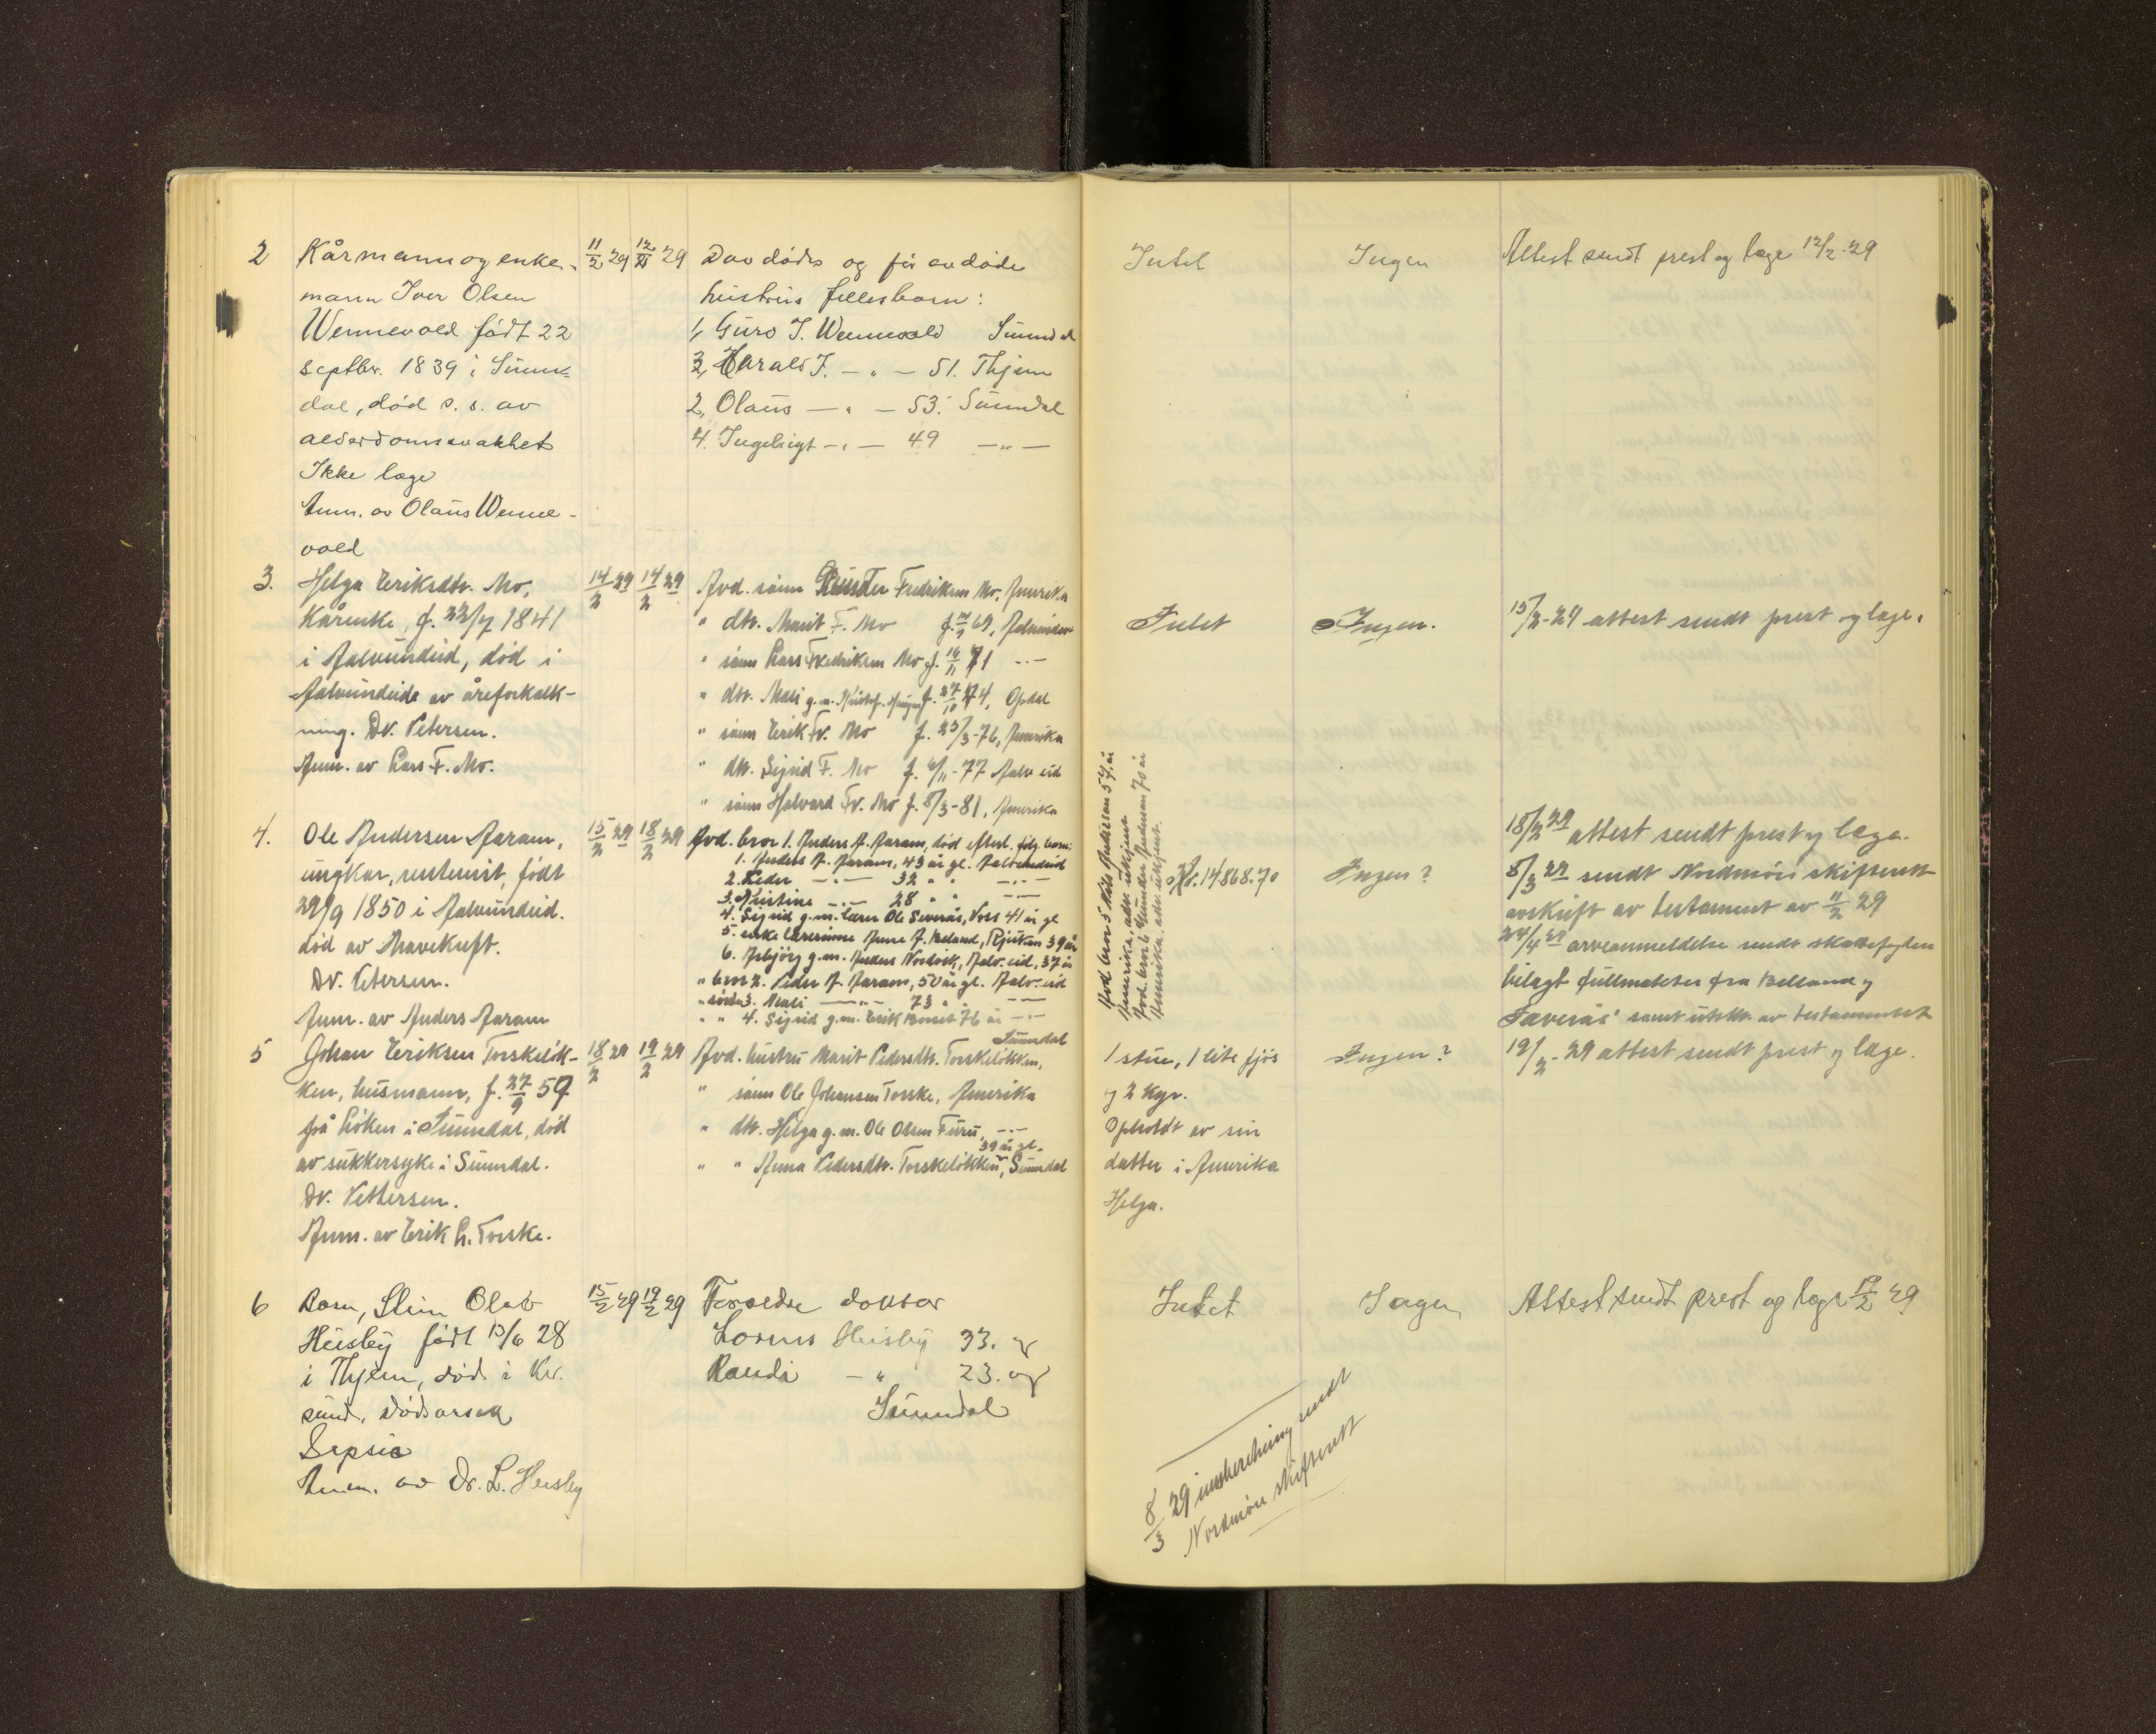 2 Kårmann og enke- 11/2 29 12/2 29 Den dødes og før avdøde Intet Ingen Attest sendt prest og læge 12/2.29
mann Iver Olsen hustrus fellesbarn:
Wennevold født 22 1, Guro I. Wennevold Sunndal
septbr. 1839 i Sunn- 3, Harald I. — „ — 51. Thjem
dal, død s. s. av 2, Olaus — „ — 53. Sunndal
alderdomsvakhet 4. Ingebrigt — „ — 49 — „ —
Ikke læge
Anm. av Olaus Wenne-
vold
3. Helga Eriksdtr. Mo, 14/2 29 14/2 29 Avd. sønn Fredriksen Mo, Amerika Intet Ingen. 15/2-29 attest sendt prest og læge.
Kårenke, f. 22/7 1841 „ dtr. Marit F. Mo 69, Aalvundeid
i Aalvundeid, død i „ sønn Lars Fredriksen Mo f. 16/11 71 — „ —
Aalvundeide av åreforkalk- „ dtr. Mali g.m. f. 27/10 74, Opdal
ning. Dr. Petersen. „ sønn Erik Fr. Mo f. 25/3-76, Amerika
Anm. av Lars F. Mo. „ dtr. Sigrid F. Mo f. 6/11-77 Aalv.eid
„ sønn Halvard Fr. Mo f. 8/3-81, Amerika
4. Ole Andersen Aaram, 15/2 29 18/2 29 Avd. bror 1. Anders A. Aaram, død efterl. følg. barn:
ungkar, rentenist, født 1. Anders A. Aaram, 43 år gl. Aalvundeid
29/9 1850 i Aalvundeid. 2. Peder — „ — 32 „ „ — „ —
død av Mavekreft. 3. Kristine — „ — 28 „ „ — „ —
Dr. Petersen. 4. Sigrid g.m. lærer Ole Sæverås, Voss 41 år gl
Anm. av Anders Aaram 5. enke lærerinne Anne A. Belland, Rjukan 39 år
6. Asbjørg g.m. Anders Nordvik, Aalv.eid, 37 år
„ bror 2. Peder A. Aaram, 50 år gl. Aalv.eid
„ søster 3. Mali — „ — 73 „ „ — „ —
„ „ 4. Sigrid g.m. Erik Borset 76 år — „ —
Avd. bror 5 Nils Andersen 57 år
Amerika, adr. ukjent
Avd. bror 6 Gunder Andersen 70 år
Amerika, adr. ukjent.
Kr. 14868.70 Ingen?
18/2 29 attest sendt prest og læge.
8/3 29 sendt Nordmøre skifterett
avskrift av testament av 11/2 29
24/4 29 arveanmeldelse sendt skattefogden
bilagt fullmakter fra Belland og
Sæverås samt utskr. av testamentet
5 Johan Eriksen Torskeløk- 18/2 29 19/2 29 Avd. hustru Marit Pedersdtr. Torskeløkken, Sunndal 1 stue, 1 lite fjøs Ingen? 19/2-29 attest sendt prest og læge.
ken, husmann, f. 27/9 59 „ sønn Ole Johansen Torske, Amerika og 2 kyr.
på Løken i Sunndal, død „ dtr. Helga g.m. Ole Olsen Furu, — „ — Opholdt av sin
av sukkersyke i Sunndal. „ „ Anna Pedersdtr. Torskeløkken, 39 år gl. Sunndal datter i Amerika
Dr. Pettersen. Helga.
Anm. av Erik L. Torske.
6 Barn, Stein Olav 15/2 29 19/2 29 Foreldre doktor Intet Ingen Attest sendt prest og læge 19/2 29
Heusley født 13/6 28 Lorens Husby 33. og
i Thjem, død i Kr. Randi — „ 23. og
sund. Dødsårsak Sunndal
Sepsis
Anm. av Dr. L. Husby
8/3 29 innberetning sendt
Nordmøre skifterett